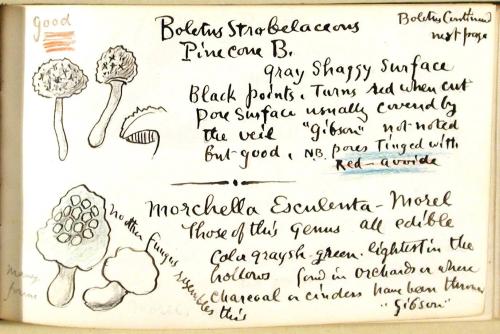 good
Boletus Strobelaceous
Pine cone B.
Boletus Continued
next page
Gray Shaggy Surface
Black points. Turns red when cut
Pore Surface usually coverd by
the veil "Gibson" not noted
but good. NB. pores Tinged with
Red - avoide
Morchella Esculenta - Morel
Those of this Genus all edible
Color graysh-green. lightest in the
hollows found in orchards or where
charcoal or cinders have been thrown
"Gibson"
no other fungus resembles
this
many
forms